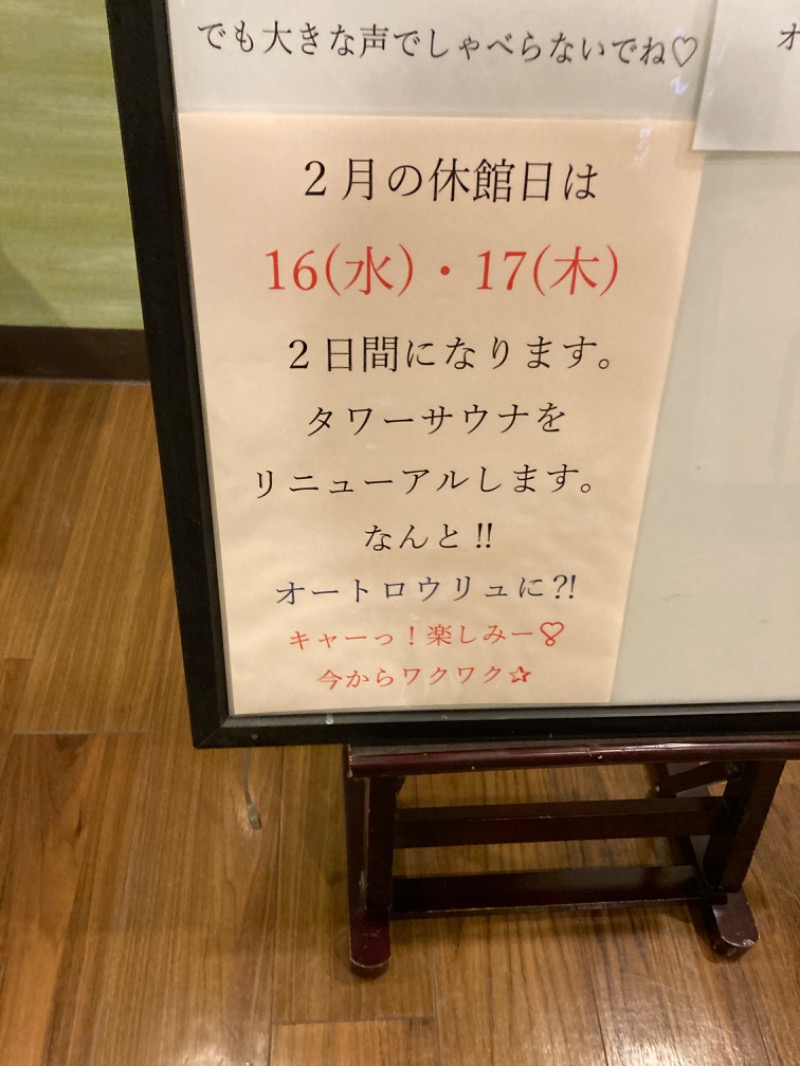 でも大きな声でしゃべらないでね♡
オ
2月の休館日は
16(水)・17(木)
2日間になります。
タワーサウナを
リニューアルします。
なんと!!
オートロウリュに?!
キャーっ!楽しみー♡
今からワクワク☆